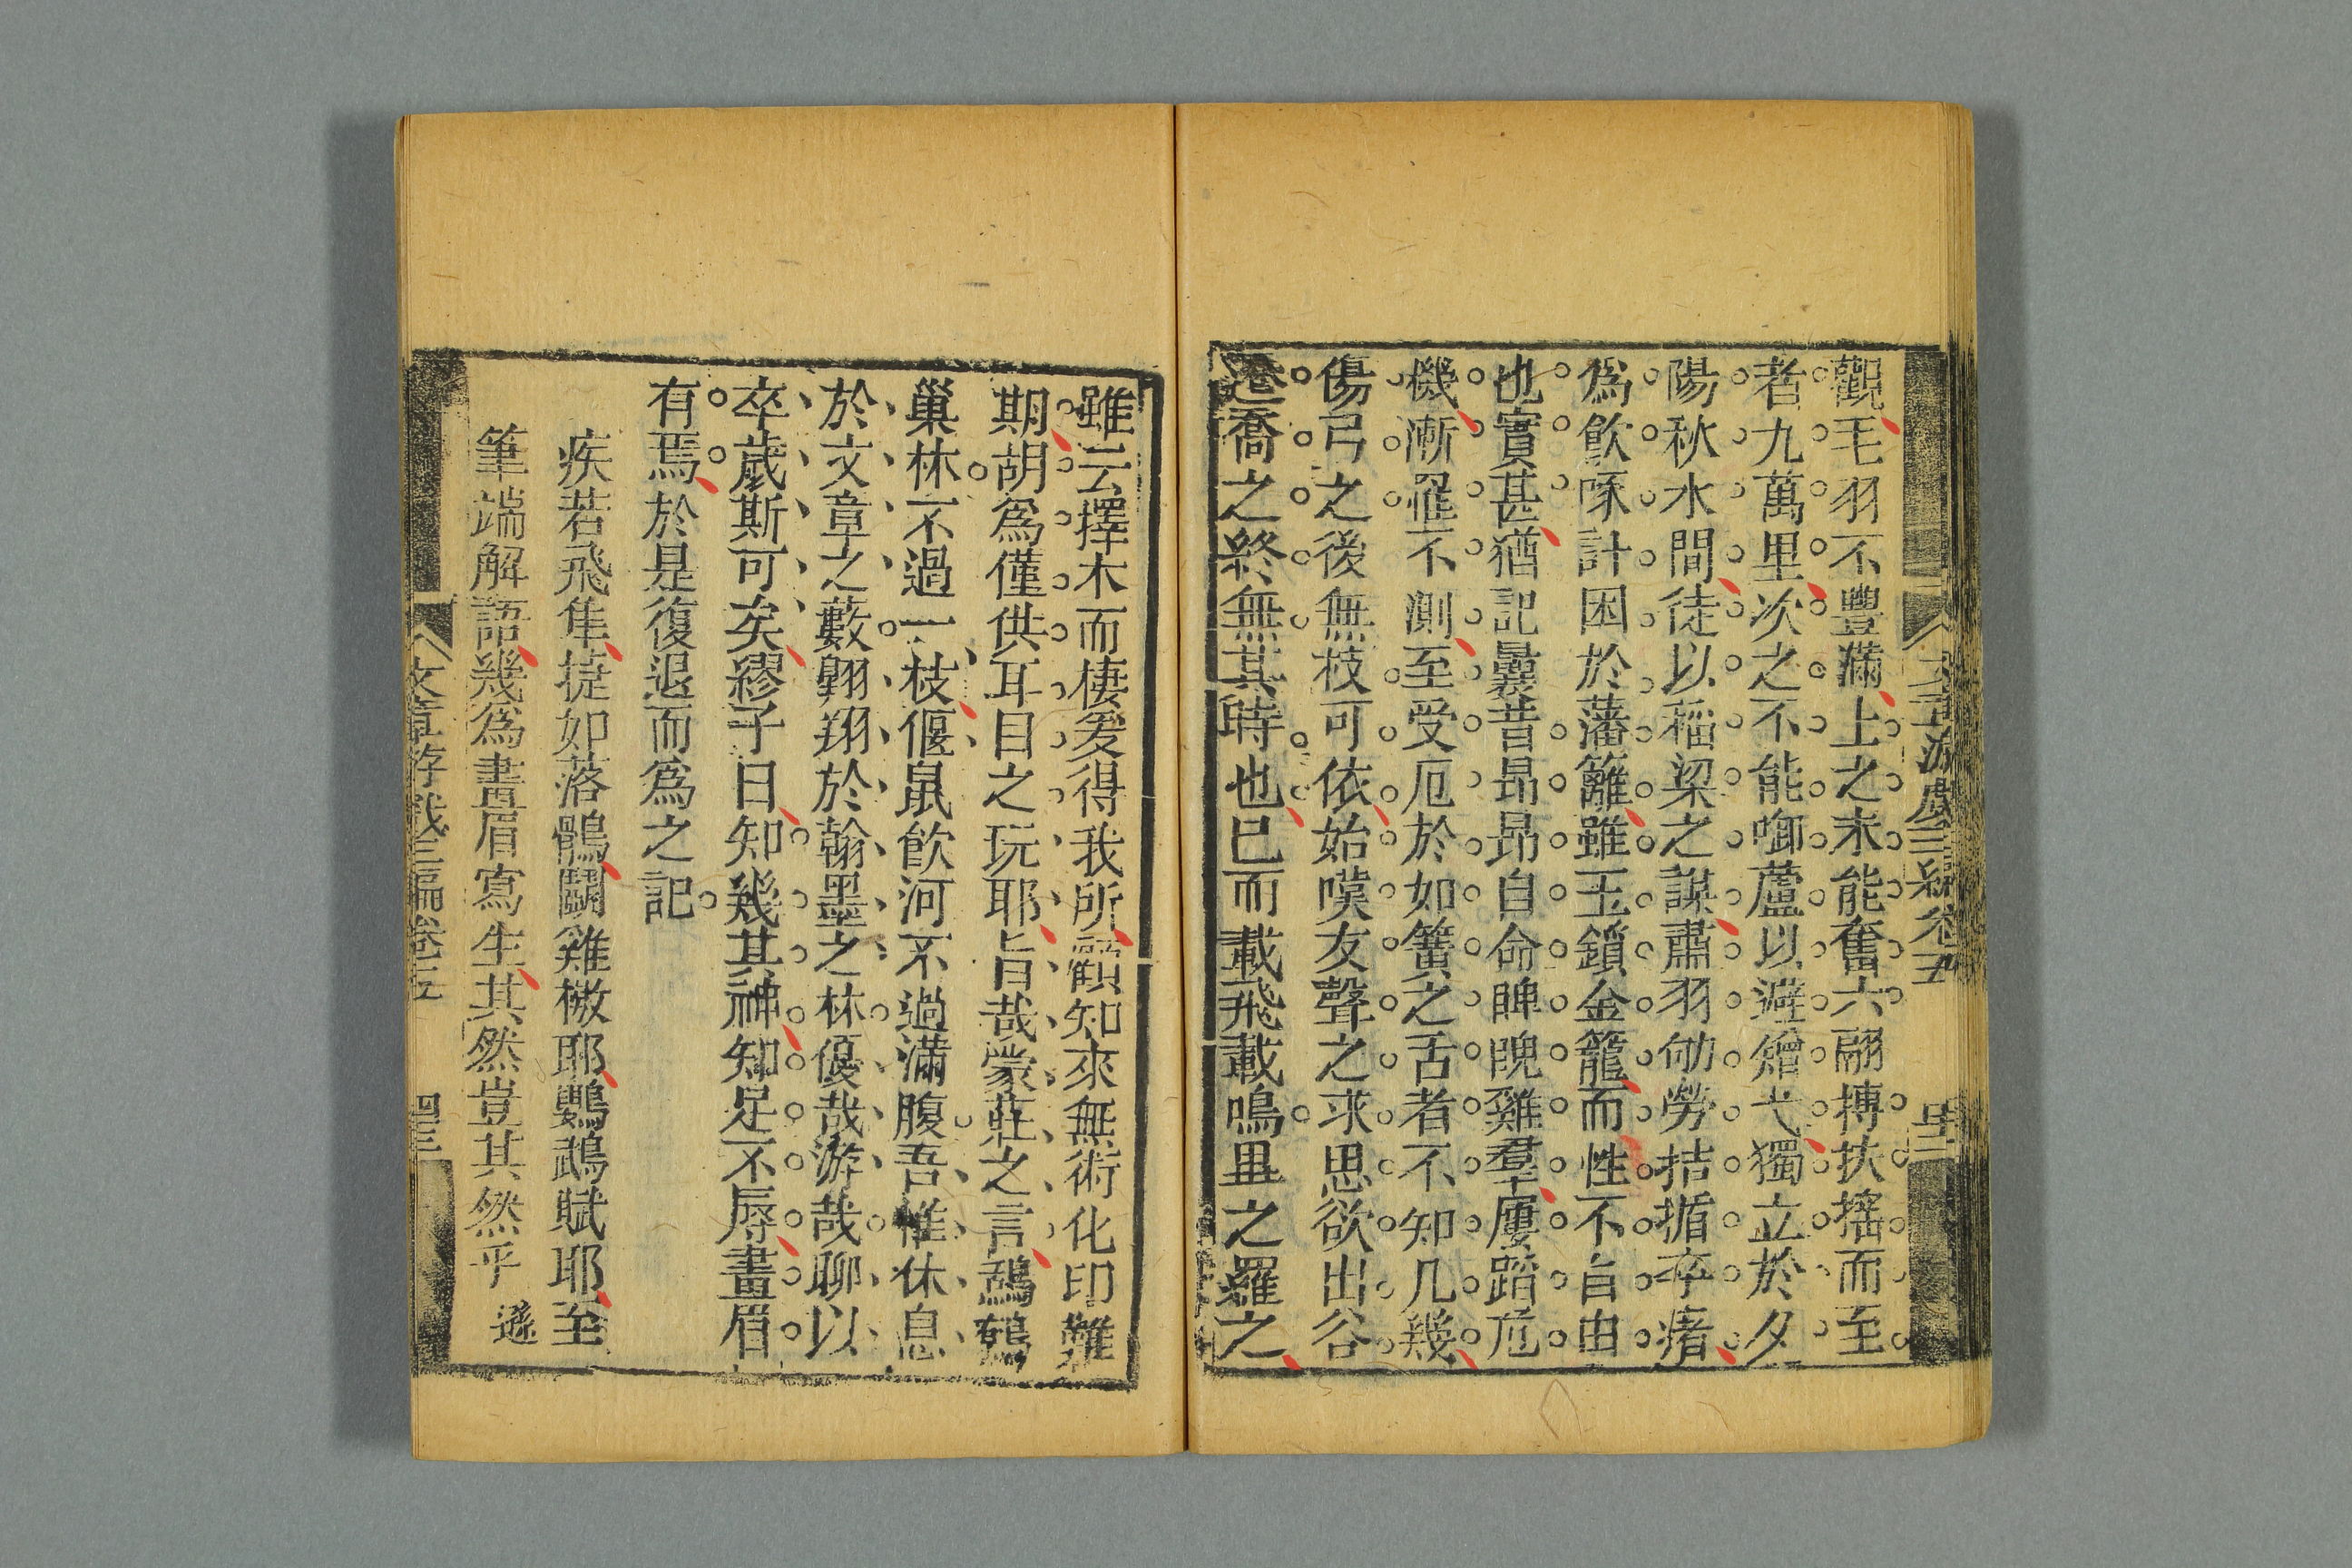 觀毛羽不豐滿上之未能奮六翮摶扶搖而至
者九萬里次之不能啣蘆以避矰弋獨立於夕
陽秋水間徒以稻粱之謀肅羽劬勞拮据卒瘏
爲飲啄計困於藩籬雖玉鎖金籠而性不自由
也實甚猶記曩昔昻昻自命睥睨雞羣屢蹈危
機漸罹不測至受厄於如簧之舌者不知几幾
傷弓之後無枝可依始嘆友聲之求思欲出谷
遷喬之終無其時也已而載飛載鳴畢之羅之
雖云擇木而棲爰得我所顧知來無術化印難
期胡爲僅供耳目之玩耶旨哉蒙莊之言鷦鷯
巢林不過一枝偃鼠飲河不過滿腹吾惟休息
於文章之藪翱翔於翰墨之林優哉游哉聊以
卒歲斯可矣繆子曰知幾其神知足不辱畫眉
有焉於是復退而爲之記
疾若飛隼㨗如落鶻鬭雞檄耶鸚鵡賦耶至
筆端解語幾爲畫眉寫生其然豈其然乎
文章游戲三編卷五
四三